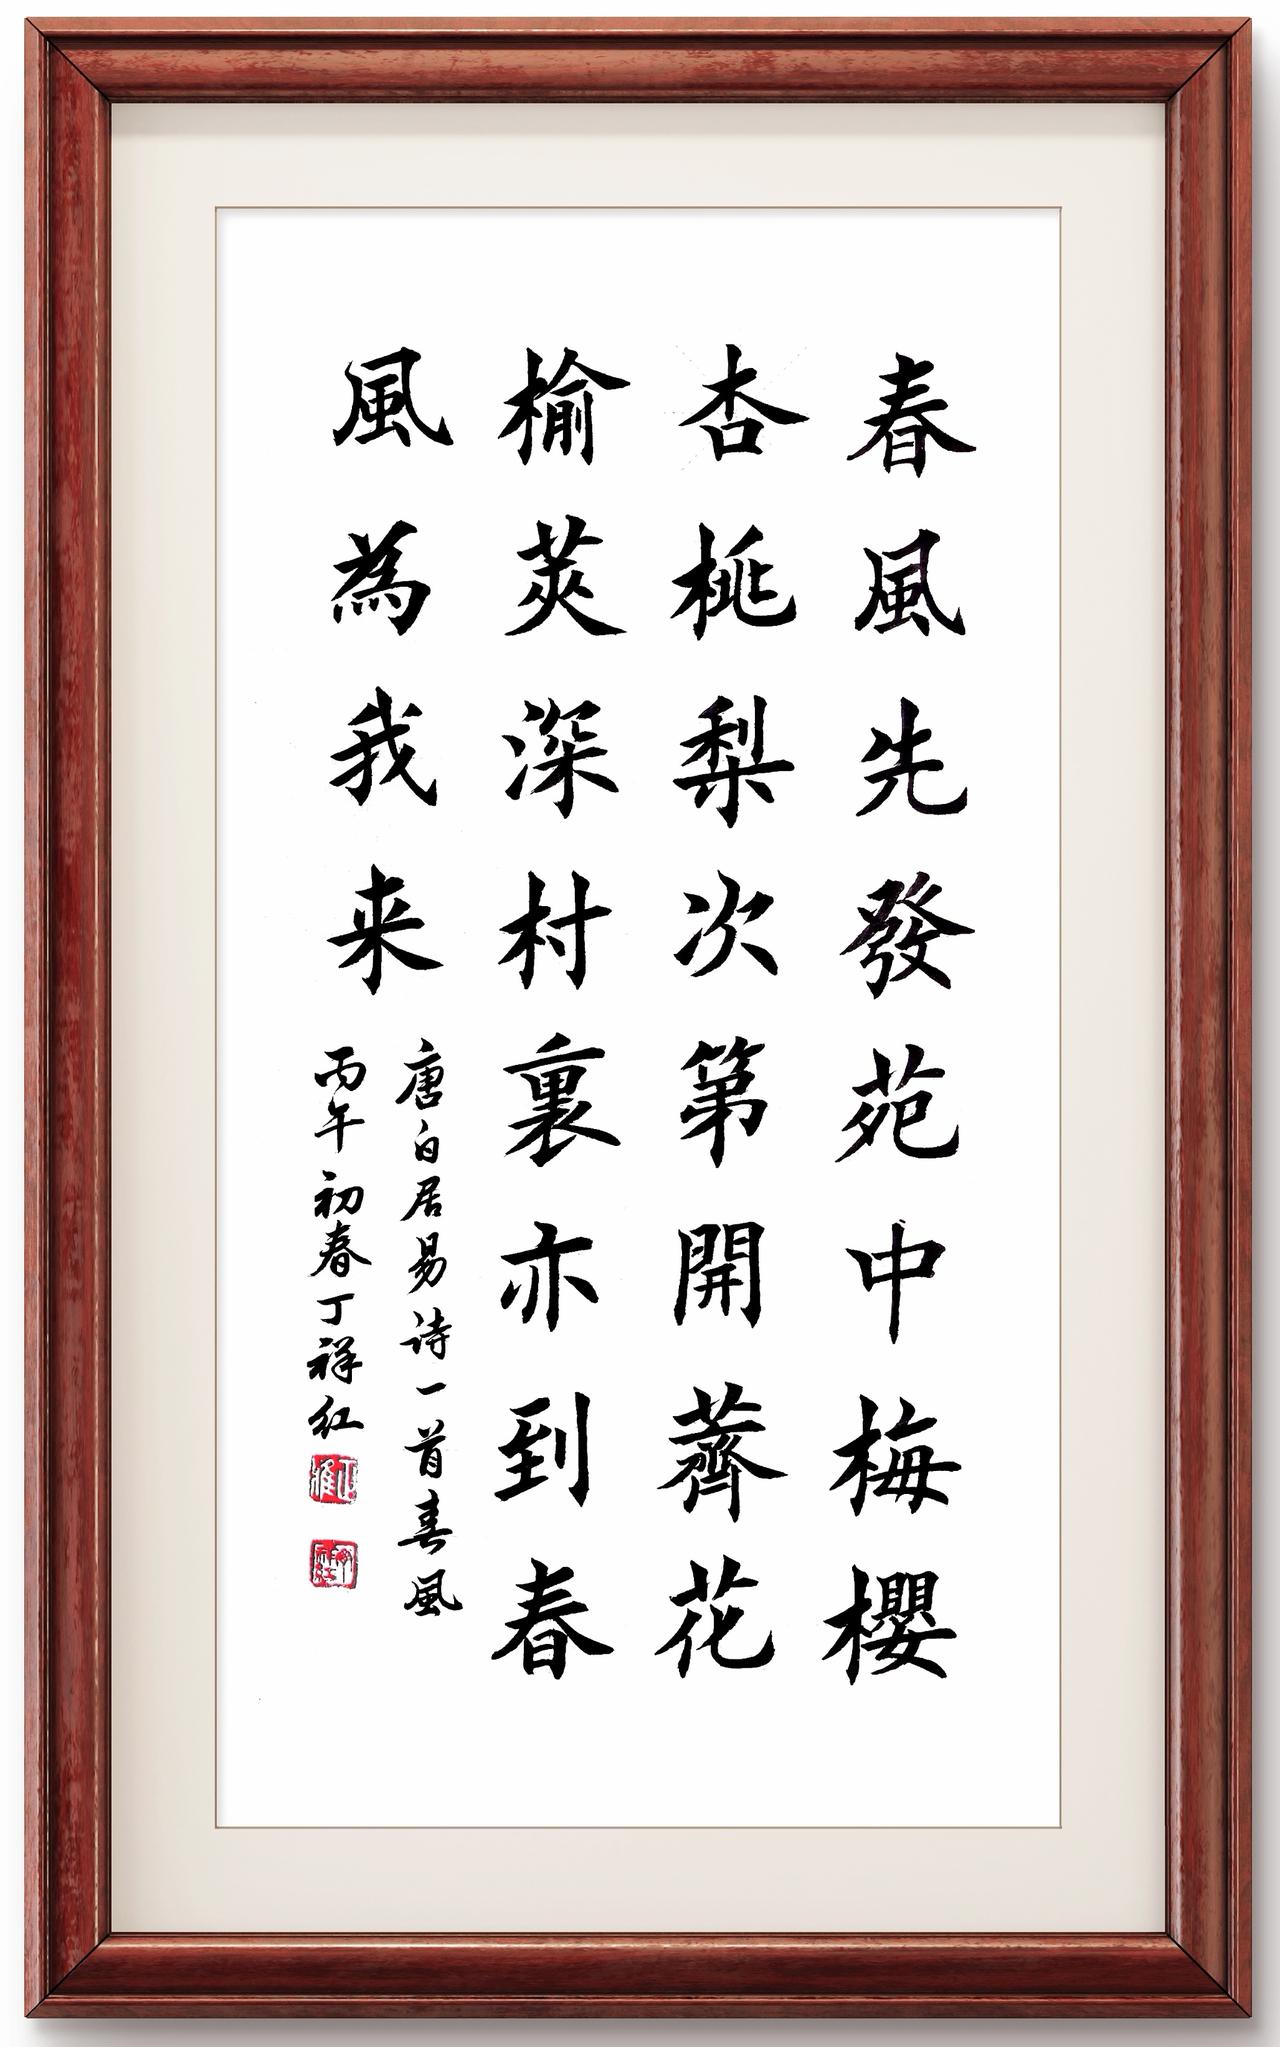 春風先發苑中梅櫻
杏桃梨次第開薺花
榆莢深村裏亦到春
風為我来
唐白居易诗一首春風
丙午初春丁祥红